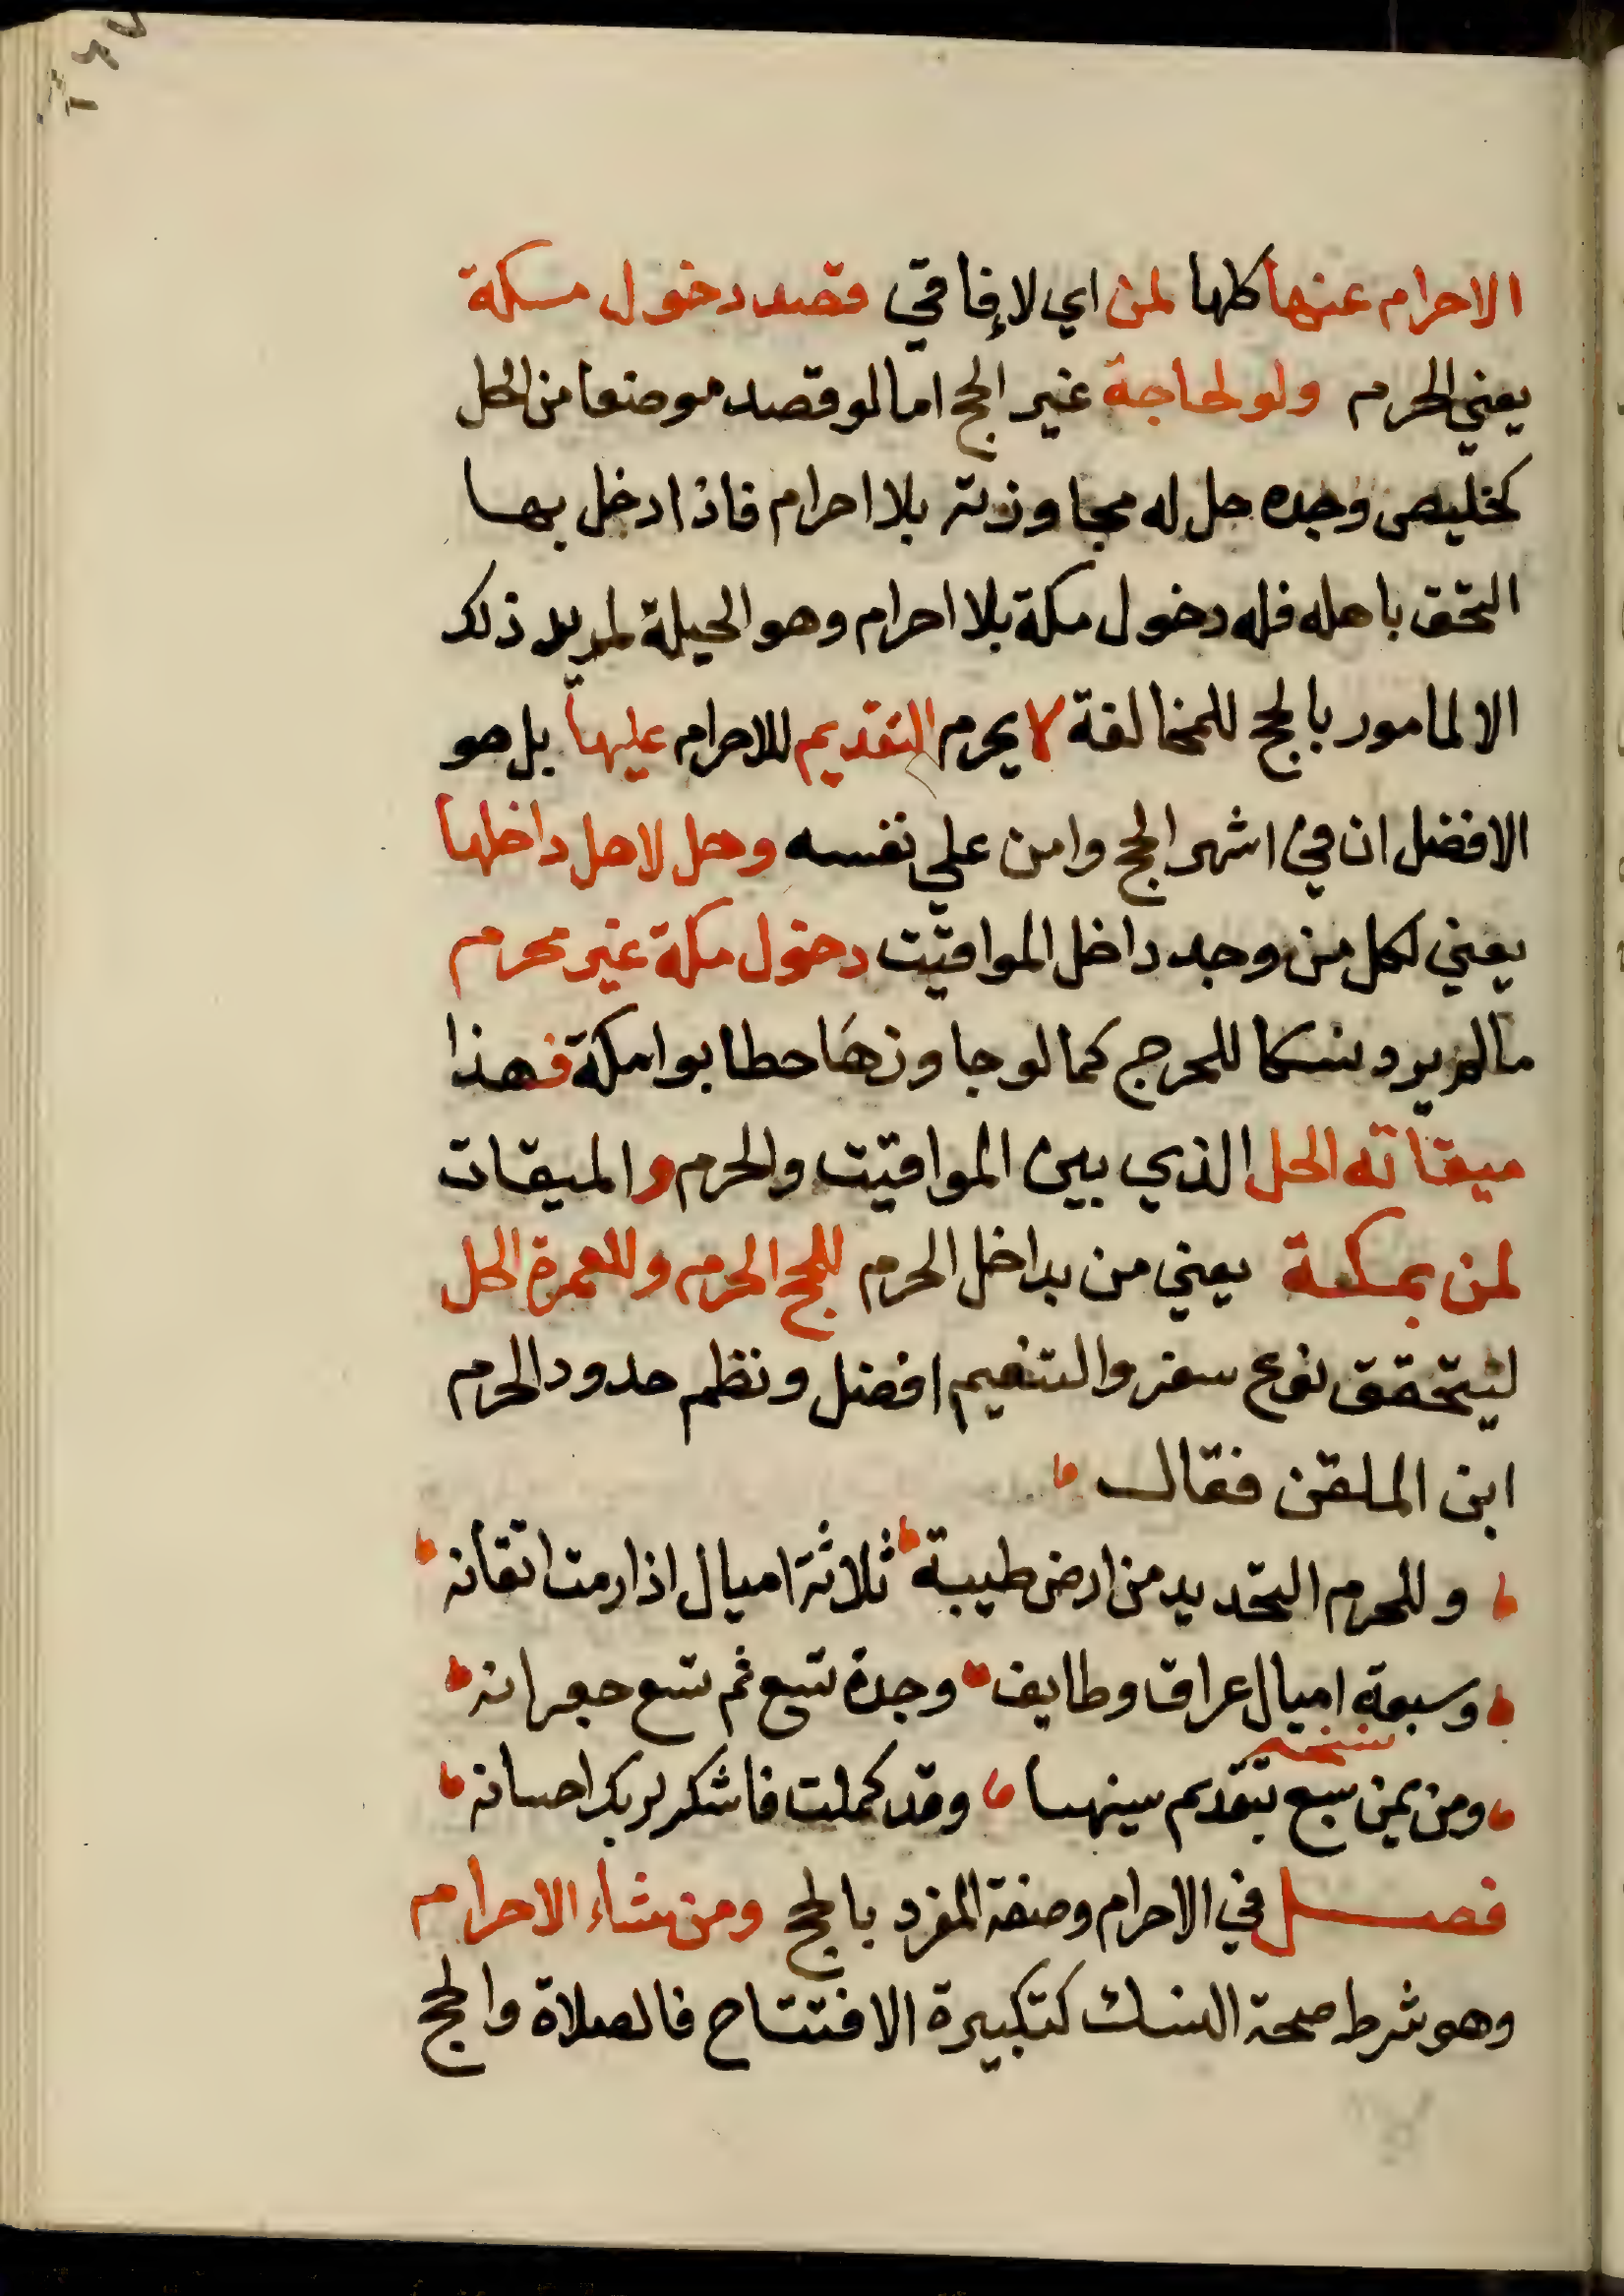 الاحرام عنها كلها لمن اي لافاقي قصد دخول مكة
يعني الحرم ولو لحاجة غير الحج اما لو قصد موضعا من الحل
كخليص وجده حل له مجاوزته بلا احرام فاذا دخل بها
التحق باهله فله دخول مكة بلا احرام وهو الحيلة لمريد ذلك
الا لمامور بالحج للمخالفة لا يحرم التقديم للاحرام عليها بل هو
الافضل ان في اشهر الحج وامن علي نفسه وحل لاهل داخلها
يعني لكل من وجد داخل المواقيت دخول مكة غير محرم
مالم يرد نسكا للحرج كما لو جاوزها حطابوا مكة فهذا
ميقاته الحل الذي بين المواقيت والحرم والميقات
لمن بمكة يعني من بداخل الحرم للحج الحرم وللعمرة الحل
ليتحقق نوع سفر والتنعيم افضل ونظم حدود الحرم
ابن الملقن فقال
وللحرم التحديد من ارض طيبة ثلاثة اميال اذا رمت اتقانه
وسبعة اميال عراق وطايف وجدة تسع ثم تسع جعرانه
ومن يمن سبع بتقديم سينها وقد كملت فاشكر لربك احسانه
فصل في الاحرام وصفة المفرد بالحج ومن شاء الاحرام
وهو شرط صحة النسك كتكبيرة الافتتاح فالصلاة والحج